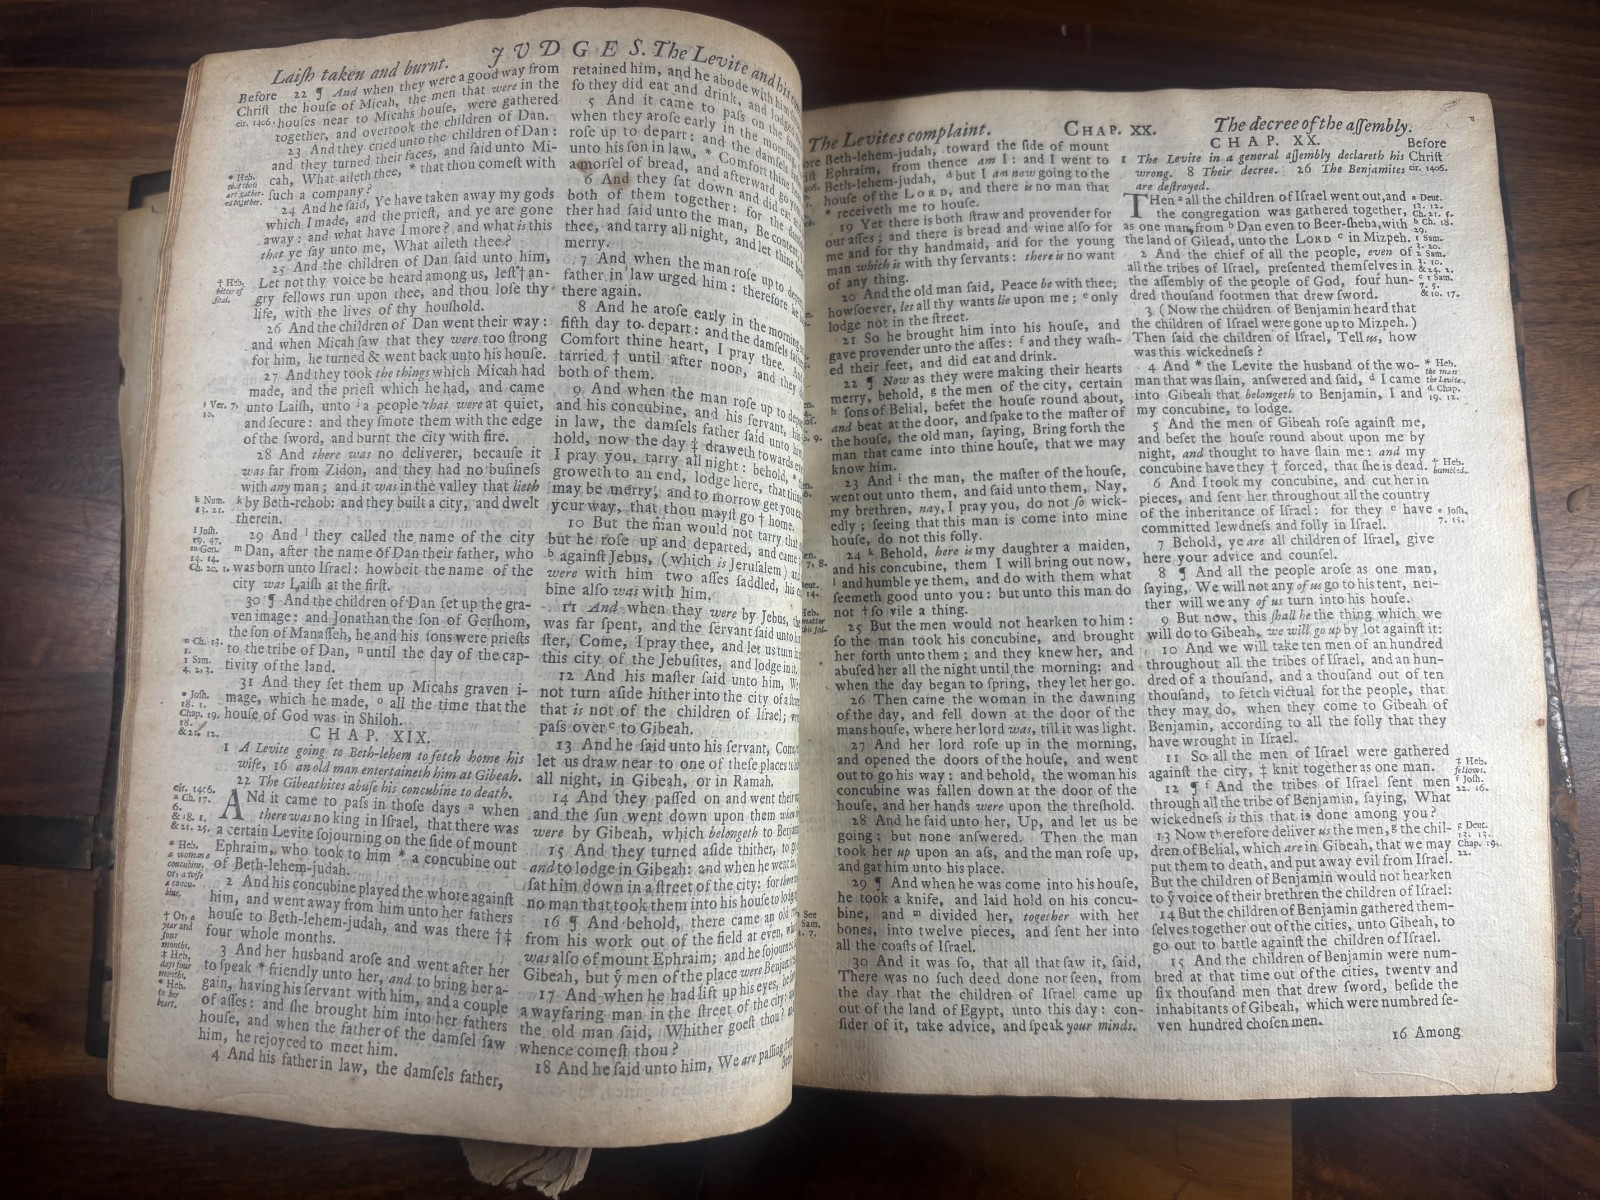 Laiſh taken and burnt.
JUDGES.
The Levite and his
22 ¶ And when they were a good way from
the houſe of Micah, the men that were in the
houſes near to Micahs houſe, were gathered
together, and overtook the children of Dan.
23 And they cried unto the children of Dan:
and they turned their faces, and ſaid unto Mi-
cah, What aileth thee, * that thou comeſt with
ſuch a company?
24 And he ſaid, Ye have taken away my gods
which I made, and the prieſt, and ye are gone
away: and what have I more? and what is this
that ye ſay unto me, What aileth thee?
25 And the children of Dan ſaid unto him,
Let not thy voice be heard among us, leſt † an-
gry fellows run upon thee, and thou loſe thy
life, with the lives of thy houſhold.
26 And the children of Dan went their way:
and when Micah ſaw that they were too ſtrong
for him, he turned & went back unto his houſe.
27 And they took the things which Micah had
made, and the prieſt which he had, and came
unto Laiſh, unto i a people that were at quiet,
and ſecure: and they ſmote them with the edge
of the ſword, and burnt the city with fire.
28 And there was no deliverer, becauſe it
was far from Zidon, and they had no buſineſs
with any man; and it was in the valley that lieth
k by Beth-rehob: and they built a city, and dwelt
therein.
29 And l they called the name of the city
m Dan, after the name of Dan their father, who
was born unto Iſrael: howbeit the name of the
city was Laiſh at the firſt.
30 ¶ And the children of Dan ſet up the gra-
ven image: and Jonathan the ſon of Gerſhom,
the ſon of Manaſſeh, he and his ſons were prieſts
to the tribe of Dan, n until the day of the cap-
tivity of the land.
31 And they ſet them up Micahs graven i-
mage, which he made, o all the time that the
houſe of God was in Shiloh.
CHAP. XIX.
1 A Levite going to Beth-lehem to fetch home his
wife, 16 an old man entertaineth him at Gibeah.
22 The Gibeathites abuſe his concubine to death.
ANd it came to paſs in thoſe days a when
there was no king in Iſrael, that there was
a certain Levite ſojourning on the ſide of mount
Ephraim, who took to him * a concubine out
of Beth-lehem-judah.
2 And his concubine played the whore againſt
him, and went away from him unto her fathers
houſe to Beth-lehem-judah, and was there †‡
four whole months.
3 And her husband aroſe and went after her
to ſpeak * friendly unto her, and to bring her a-
gain, having his ſervant with him, and a couple
of aſſes: and ſhe brought him into her fathers
houſe, and when the father of the damſel ſaw
him, he rejoyced to meet him.
4 And his father in law, the damſels father,
Before
Chriſt
cir. 1406.
* Heb.
that thou
art gather-
ed together.
† Heb.
bitter of
ſoul.
i Ver. 7,
10.
k Num.
13. 21.
l Joſh.
19. 47.
m Gen.
14. 14.
Ch. 20. 1.
n Ch. 13.
1.
1 Sam.
4. 2, 3.
* Joſh.
18. 1.
Chap. 19.
18.
& 21. 12.
cir. 1406.
a Ch. 17.
6.
& 18. 1.
& 21. 25.
* Heb.
a woman a
concubine,
or, a wife
a concu-
bine.
† Or, a
year and
four
months.
‡ Heb.
days four
months.
* Heb.
to her
heart.
retained him, and he abode with him
ſo they did eat and drink, and lodged
5 And it came to paſs on the
when they aroſe early in the morning
roſe up to depart: and the damſels
unto his ſon in law, * Comfort thine
a morſel of bread, and afterward go
6 And they ſat down and did eat
both of them together: for the
ther had ſaid unto the man, Be content
thee, and tarry all night, and let thine
merry.
7 And when the man roſe up to
father in law urged him: therefore he
there again.
8 And he aroſe early in the morning
fifth day to depart: and the damſels
Comfort thine heart, I pray thee. And
tarried † until after noon, and they
both of them.
9 And when the man roſe up to depart
and his concubine, and his ſervant, his
in law, the damſels father ſaid unto him
hold, now the day ‡ draweth towards
I pray you, tarry all night: behold, *
groweth to an end, lodge here, that thine
may be merry; and to morrow get you
your way, that thou mayſt go † home.
10 But the man would not tarry that
but he roſe up and departed, and came
b againſt Jebus, (which is Jeruſalem)
were with him two aſſes ſaddled, his
bine alſo was with him.
11 And when they were by Jebus, the
was far ſpent, and the ſervant ſaid unto
ſter, Come, I pray thee, and let us turn
this city of the Jebuſites, and lodge in it.
12 And his maſter ſaid unto him, We
not turn aſide hither into the city of a
that is not of the children of Iſrael;
paſs over c to Gibeah.
13 And he ſaid unto his ſervant, Come
let us draw near to one of theſe places to
all night, in Gibeah, or in Ramah.
14 And they paſſed on and went their
and the ſun went down upon them when
were by Gibeah, which belongeth to
15 And they turned aſide thither, to go
and to lodge in Gibeah: and when he went
ſat him down in a ſtreet of the city: for
no man that took them into his houſe to
16 ¶ And behold, there came an old
from his work out of the field at even,
was alſo of mount Ephraim; and he ſojourned
Gibeah, but ẏ men of the place were
17 And when he had lift up his eyes, he
a wayfaring man in the ſtreet of the city:
the old man ſaid, Whither goeſt thou?
whence comeſt thou?
18 And he ſaid unto him, We are paſſing from
The Levites complaint.
CHAP. XX.
The decree of the aſſembly.
Beth-lehem-judah, toward the ſide of mount
Ephraim, from thence am I: and I went to
Beth-lehem-judah, d but I am now going to the
houſe of the LORD, and there is no man that
* receiveth me to houſe.
19 Yet there is both ſtraw and provender for
our aſſes; and there is bread and wine alſo for
me and for thy handmaid, and for the young
man which is with thy ſervants: there is no want
of any thing.
20 And the old man ſaid, Peace be with thee;
howſoever, let all thy wants lie upon me; e only
lodge not in the ſtreet.
21 So he brought him into his houſe, and
gave provender unto the aſſes: f and they waſh-
ed their feet, and did eat and drink.
22 ¶ Now as they were making their hearts
merry, behold, g the men of the city, certain
h ſons of Belial, beſet the houſe round about,
and beat at the door, and ſpake to the maſter of
the houſe, the old man, ſaying, Bring forth the
man that came into thine houſe, that we may
know him.
23 And i the man, the maſter of the houſe,
went out unto them, and ſaid unto them, Nay,
my brethren, nay, I pray you, do not ſo wick-
edly; ſeeing that this man is come into mine
houſe, do not this folly.
24 k Behold, here is my daughter a maiden,
and his concubine, them I will bring out now,
l and humble ye them, and do with them what
ſeemeth good unto you: but unto this man do
not † ſo vile a thing.
25 But the men would not hearken to him:
ſo the man took his concubine, and brought
her forth unto them; and they knew her, and
abuſed her all the night until the morning: and
when the day began to ſpring, they let her go.
26 Then came the woman in the dawning
of the day, and fell down at the door of the
mans houſe, where her lord was, till it was light.
27 And her lord roſe up in the morning,
and opened the doors of the houſe, and went
out to go his way: and behold, the woman his
concubine was fallen down at the door of the
houſe, and her hands were upon the threſhold.
28 And he ſaid unto her, Up, and let us be
going: but none anſwered. Then the man
took her up upon an aſs, and the man roſe up,
and gat him unto his place.
29 ¶ And when he was come into his houſe,
he took a knife, and laid hold on his concu-
bine, and m divided her, together with her
bones, into twelve pieces, and ſent her into
all the coaſts of Iſrael.
30 And it was ſo, that all that ſaw it, ſaid,
There was no ſuch deed done nor ſeen, from
the day that the children of Iſrael came up
out of the land of Egypt, unto this day: con-
ſider of it, take advice, and ſpeak your minds.
CHAP. XX.
1 The Levite in a general aſſembly declareth his
wrong. 8 Their decree. 26 The Benjamites
are deſtroyed.
THen a all the children of Iſrael went out, and
the congregation was gathered together,
as one man, from b Dan even to Beer-ſheba, with
the land of Gilead, unto the LORD c in Mizpeh.
2 And the chief of all the people, even of
all the tribes of Iſrael, preſented themſelves in
the aſſembly of the people of God, four hun-
dred thouſand footmen that drew ſword.
3 (Now the children of Benjamin heard that
the children of Iſrael were gone up to Mizpeh.)
Then ſaid the children of Iſrael, Tell us, how
was this wickedneſs?
4 And * the Levite the husband of the wo-
man that was ſlain, anſwered and ſaid, d I came
into Gibeah that belongeth to Benjamin, I and
my concubine, to lodge.
5 And the men of Gibeah roſe againſt me,
and beſet the houſe round about upon me by
night, and thought to have ſlain me: and my
concubine have they † forced, that ſhe is dead.
6 And I took my concubine, and cut her in
pieces, and ſent her throughout all the country
of the inheritance of Iſrael: for they e have
committed lewdneſs and folly in Iſrael.
7 Behold, ye are all children of Iſrael, give
here your advice and counſel.
8 ¶ And all the people aroſe as one man,
ſaying, We will not any of us go to his tent, nei-
ther will we any of us turn into his houſe.
9 But now, this ſhall be the thing which we
will do to Gibeah, we will go up by lot againſt it:
10 And we will take ten men of an hundred
throughout all the tribes of Iſrael, and an hun-
dred of a thouſand, and a thouſand out of ten
thouſand, to fetch victual for the people, that
they may do, when they come to Gibeah of
Benjamin, according to all the folly that they
have wrought in Iſrael.
11 So all the men of Iſrael were gathered
againſt the city, ‡ knit together as one man.
12 ¶ f And the tribes of Iſrael ſent men
through all the tribe of Benjamin, ſaying, What
wickedneſs is this that is done among you?
13 Now therefore deliver us the men, g the chil-
dren of Belial, which are in Gibeah, that we may
put them to death, and put away evil from Iſrael.
But the children of Benjamin would not hearken
to ẏ voice of their brethren the children of Iſrael:
14 But the children of Benjamin gathered them-
ſelves together out of the cities, unto Gibeah, to
go out to battle againſt the children of Iſrael.
15 And the children of Benjamin were num-
bred at that time out of the cities, twenty and
ſix thouſand men that drew ſword, beſide the
inhabitants of Gibeah, which were numbred ſe-
ven hundred choſen men.
16 Among
Before
Chriſt
cir. 1406.
a Deut.
13. 12.
Ch. 21. 5.
b Ch. 18.
29.
1 Sam.
3. 20.
2 Sam.
3. 10.
& 24. 2.
c 1 Sam.
7. 5.
& 10. 17.
* Heb.
the man
the Levite.
d Chap.
19. 12.
† Heb.
humbled.
e Joſh.
7. 15.
‡ Heb.
fellows.
f Joſh.
22. 16.
g Deut.
13. 13.
Chap. 19.
22.